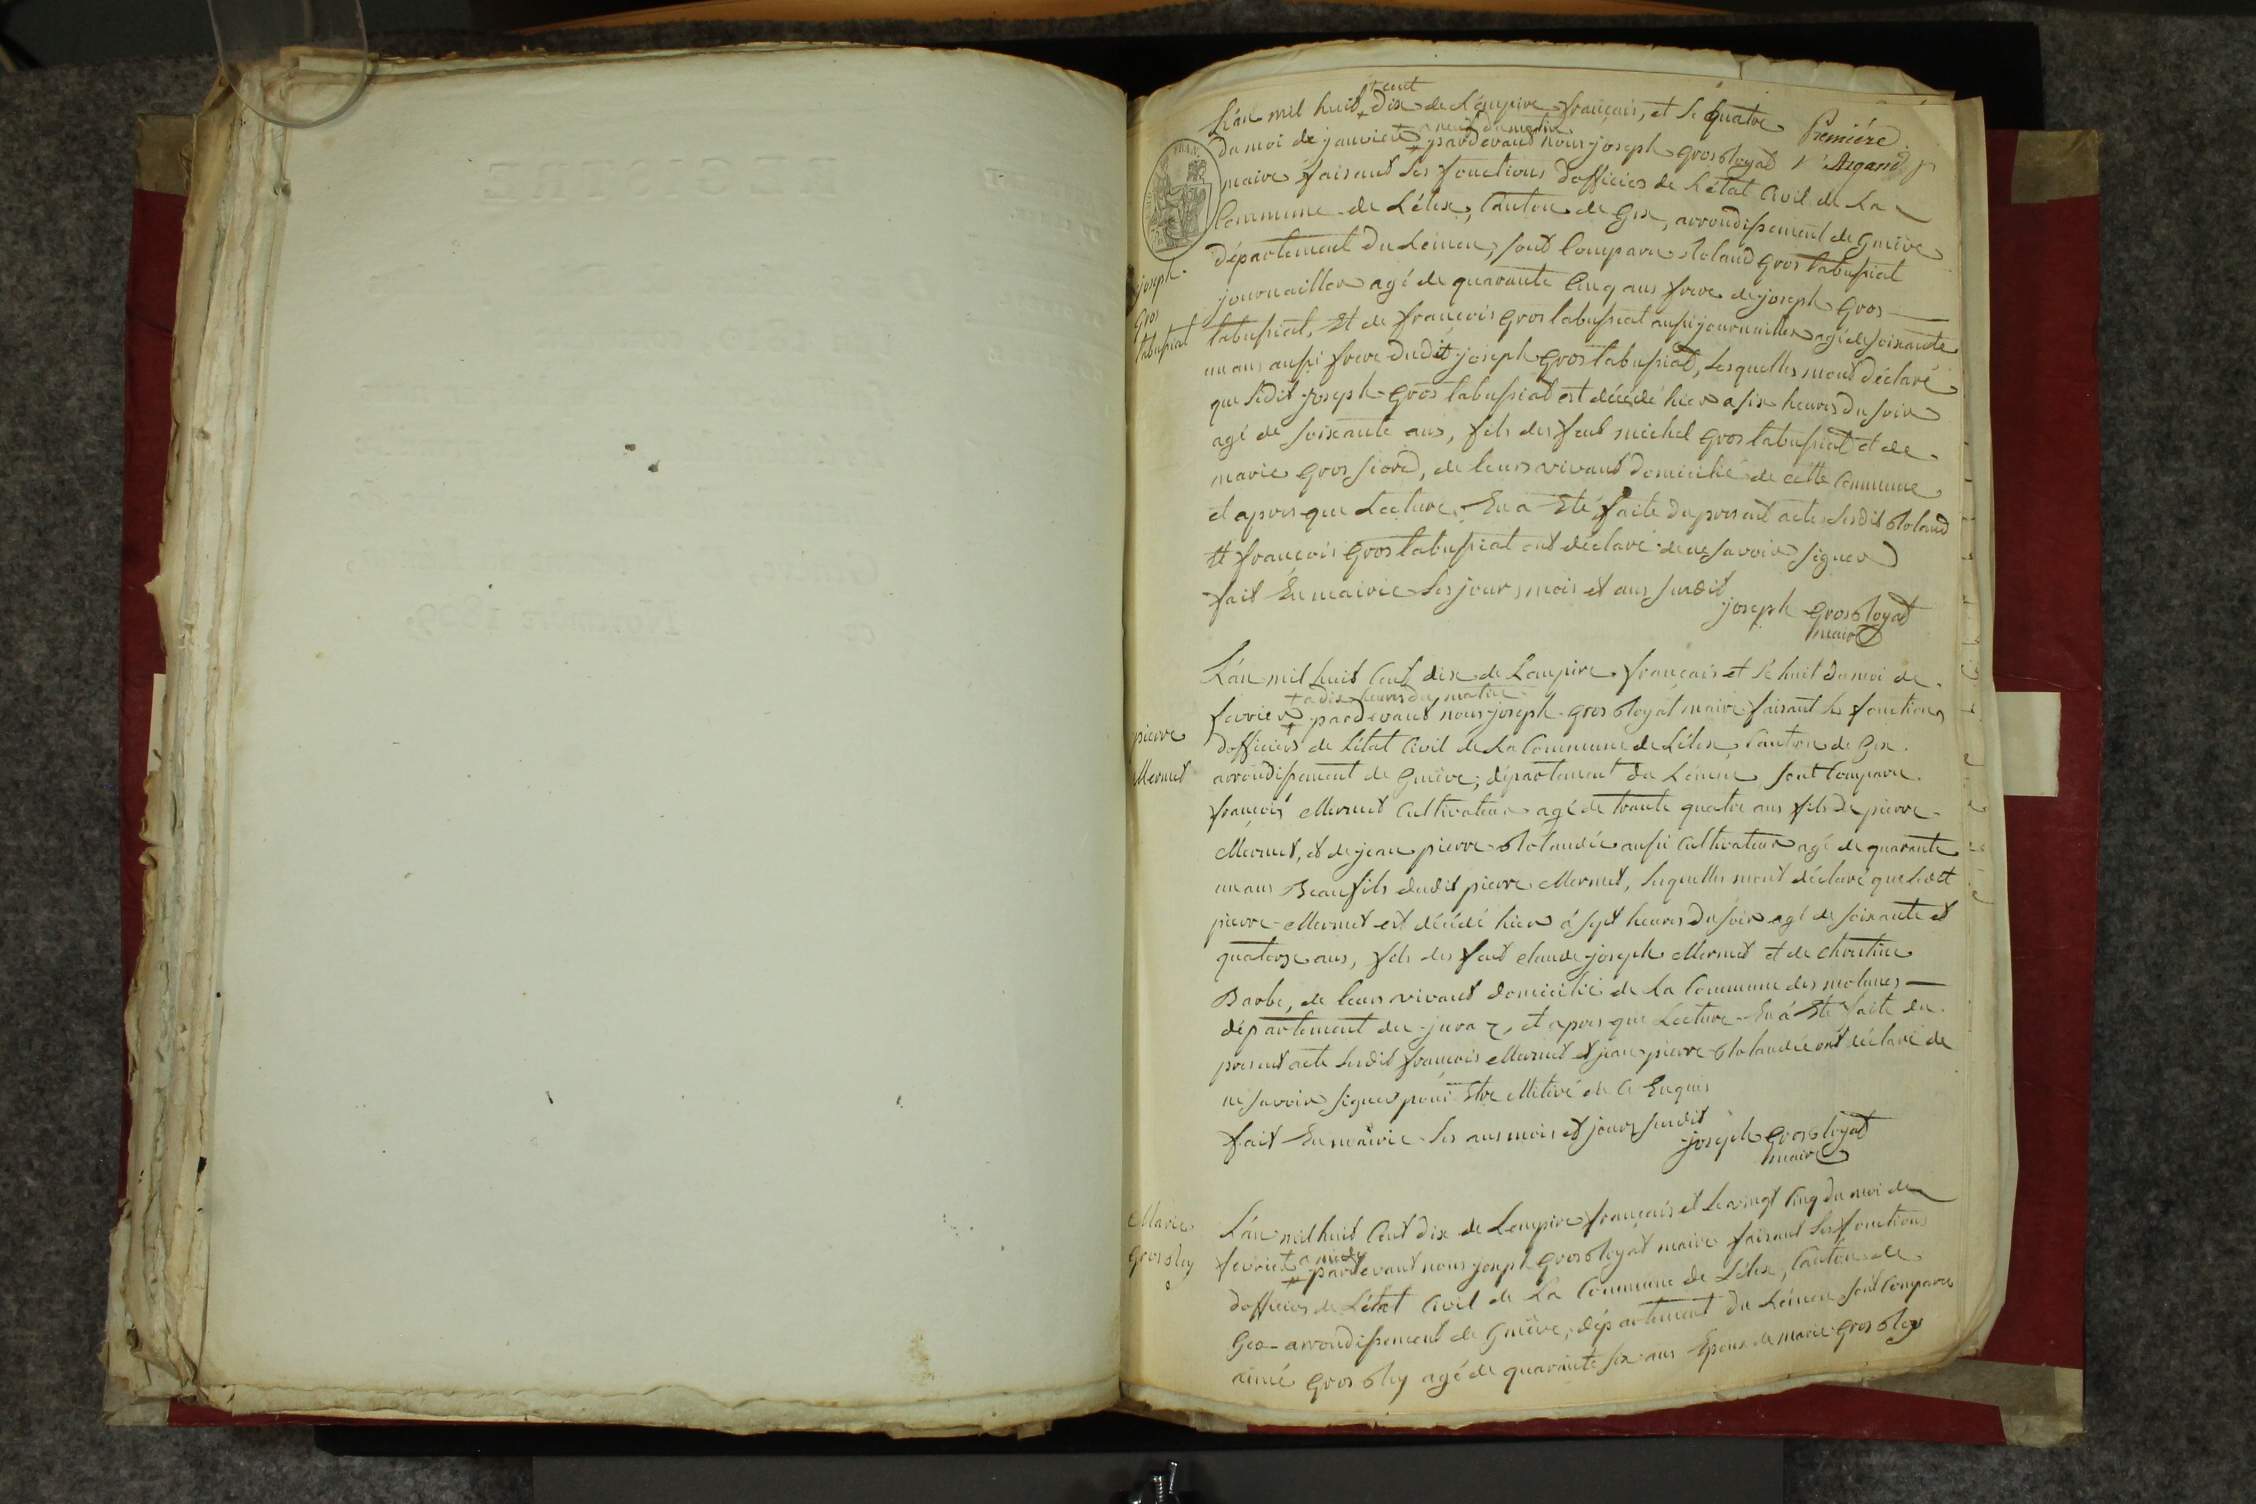 Première
Argand p
L'án mil huit + cent dix de L'émpire français, et le quatre
du moi de janvier + a neuf du matin pardevant nous joseph grosbloyat
maire faisant les fonctions dofficier de L'état Civil de La
Commune de Lélex, Canton de Gex, arrondissement de Genêve
département du Léman, sont Comparu Roland Gros labussiat
journaillier agé de quarante Cinq ans frere de joseph Gros
labussiat, Et de françois gros labussiat aussi journaillier agé de soixante
un ans aussi frere dudit joseph Gros labussiat, Lesquelles mont déclaré
que Ledit joseph Gros labussiat est décédé hier a six heures du soir
agé de soixante ans, fils des feut michel Gros labussiat et de
marie Gros fiord, de leurs vivant domicilié de cette Commune
et apres que Lecture En a Eté faite du present acte, Lesdit Roland
Et françois Gros labussiat ont déclaré de ne savoir signer
fait En mairie Les jour, mois et ans susdit
joseph grosbloyat
maire
joseph
Gros
labussiat
L'án mil huit Cent dix de L'empire français et le huit du moi de
fevrier + a dix heures du matin pardevant nous joseph grosbloyat maire faisant les fonctions
dofficier de L'état Civil de La Commune de Lélex Canton de Gex
arrondissement de Genêve, département du Léman, sont Comparu
françois Mermet Cultivateur agé de trante quatre ans fils de pierre
Mermet, et de jean pierre Rolandée aussi Cultivateur agé de quarante
un ans Beaufils dudit pierre Mermet, Lesquelles mont déclaré que Ledit
pierre Mermet est décédé hier á sept heures du soir agé de soixante et
quatorze ans, fils des feut claude joseph Mermet et de
Barbe, de leurs vivant domicilié de La Commune des molunes
département du jura, et apres que Lecture En á Eté faite du
present acte Lesdit françois Mermet et jean pierre Rolandée ont déclaré de
ne savoir signer pour Etre de Ce Enquis
fait En mairie Les ans mois et jours susdit
joseph grosbloyat
maire
pierre
Mermet
L'án mil huit Cent dix de L'empire français et le vingt Cinq du moi de
fevrier + a midy pardevant nous joseph grosbloyat maire faisant Les fonctions
dofficier de L'état Civil de La Commune de Lélex, Canton de
Gex arrondissement de Genêve, département du Léman sont Comparu
aimé Gros bley agé de quarante six ans Epoux de marie Gros bley
Marie
Gros bley